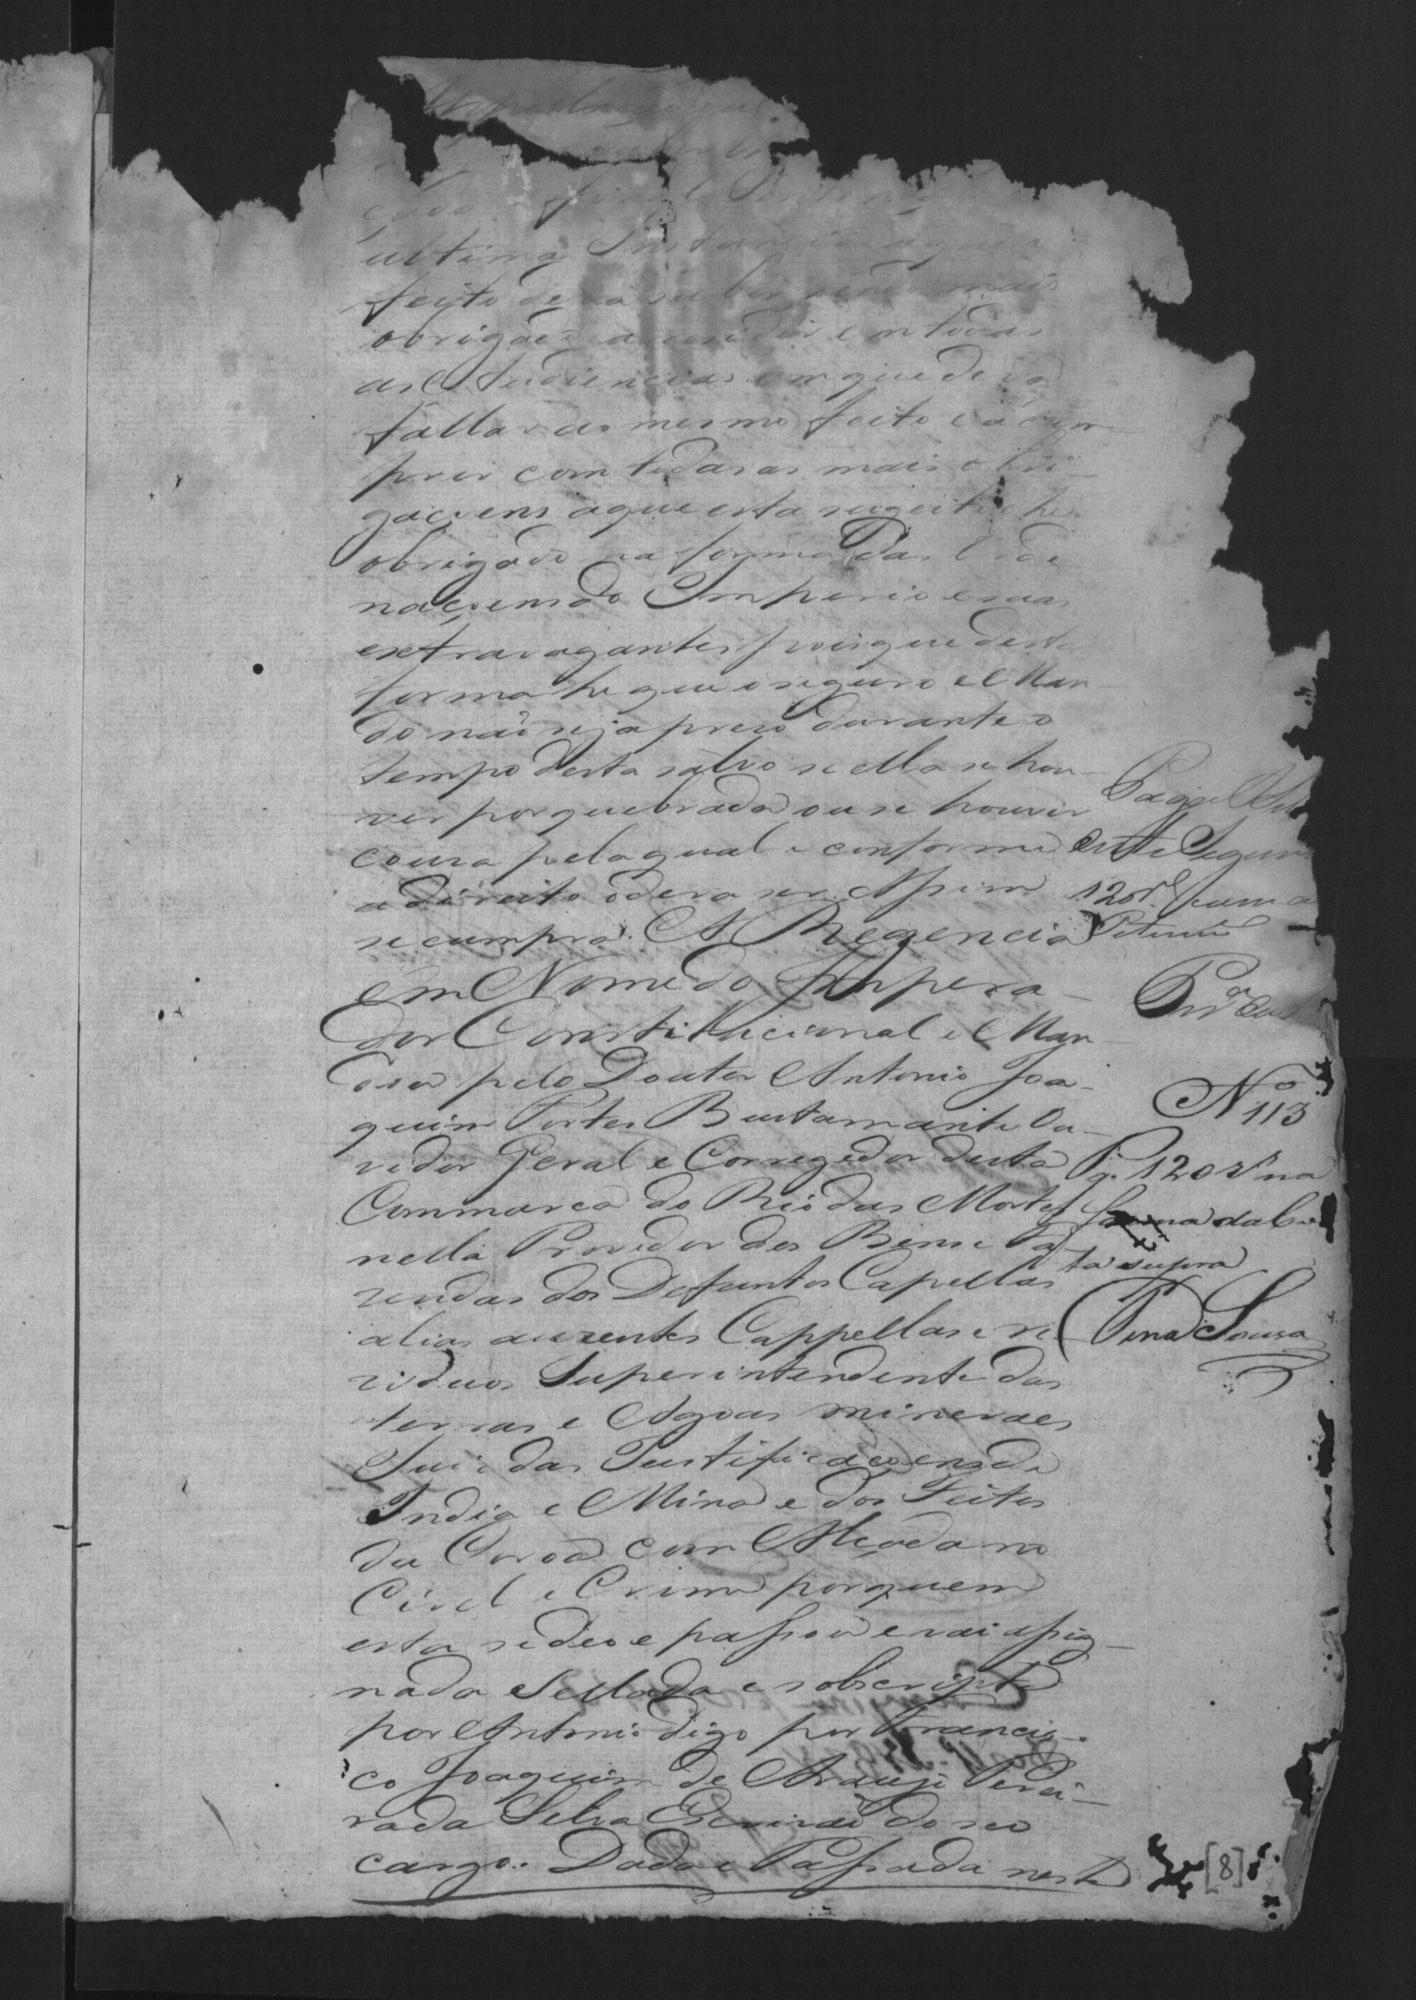 ultima Instancia aque o
feito deva subir será mais
obrigado a residir em todas
as Audiencias em que deva
fallar ao mesmo feito e a cum
prir com todas as mais obri
gaçoens aque esta sugeito e he
obrigado na forma das Orde
naçoens do Imperio e suas
extravagantes pois que desta
forma he que o seguro e Man
do não seja prezo durante o
tempo desta salvo se ella se hou
ver por quebrada ou se houver
couza pela qual e conforme
a direito o deva ser. Assim
se cumpra. A Regencia
em Nome do Impera
dor Constitucional e Man
dou pelo Doutor Antonio Joa
quim Fortes Bustamante Ou
vidor Geral e Corregedor desta
Commarca do Rio das Mortes
nella Provedor dos Bens e Fa
zendas dos Defuntos Capellas
alias auzentes Cappellas e re
ziduos Superintendente das
terras e Agoas mineraes
Juiz das Justificaçoens de
India e Mina e dos Feitos
da Coroa com Alçada no
Civel e Crime por quem
esta se deo e passou e vai assig
nada Sellada e sobscripta
por Antonio digo por Francis
co Joaquim de Araujo Perei
ra da Silva Escrivão do seo
cargo. Dada e Passada nesta
Pagou
este Seguro
120r.s
Nº 113
Pg. 120 rs na
forma da
ta supra
Pina Souza
[8]